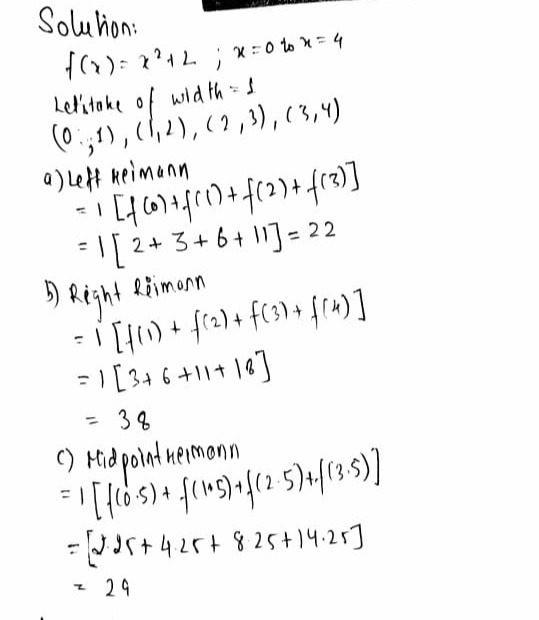 Solution:
f(x) = x²+2 ; x=0 to x=4
Let's take of width = 1
(0,1), (1,2), (2,3), (3,4)
a) Left Reimann
= 1 [f(0)+f(1)+f(2)+f(3)]
= 1 [2+3+6+11] = 22
b) Right Reimann
= 1 [f(1) + f(2)+f(3)+f(4)]
= 1 [3+6+11+18]
= 38
c) Midpoint Reimann
= 1 [f(0.5)+f(1.5)+f(2.5)+f(3.5)]
= [2.25+4.25+8.25+14.25]
= 29